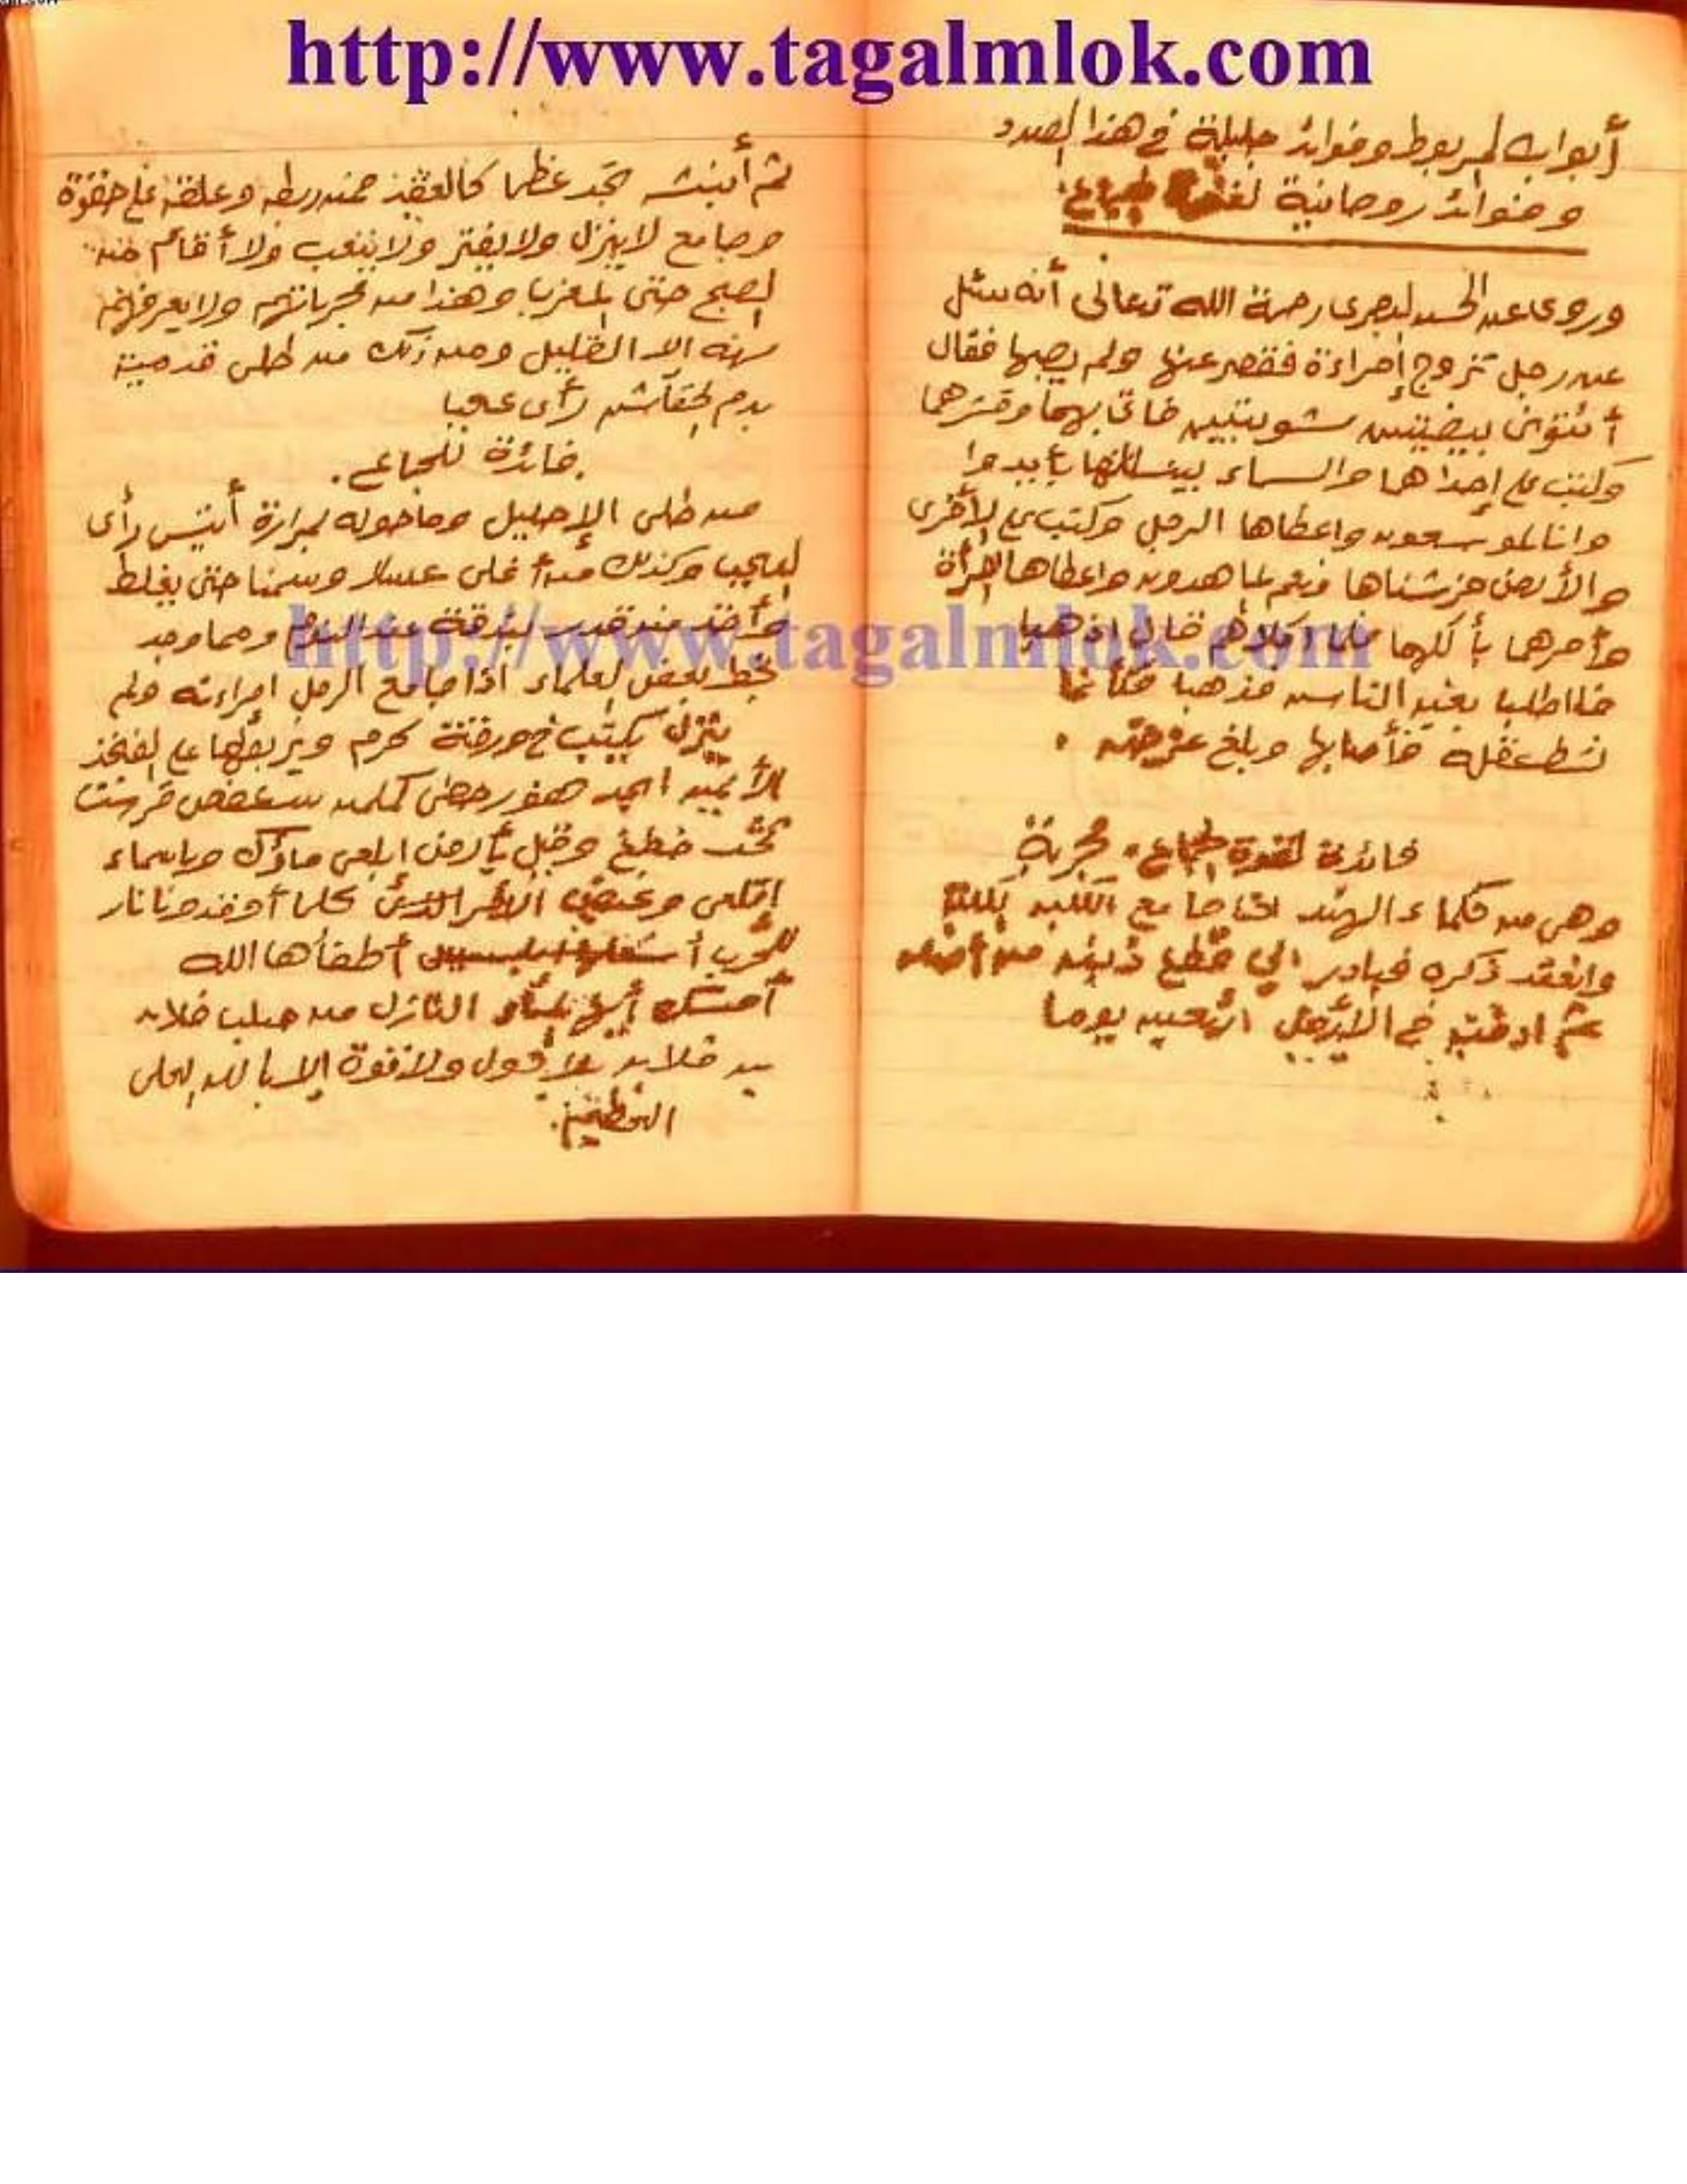 http://www.tagalmlok.com
أبواب المربوط وفوائد جليلة في هذا الصدد
وفوائد روحانية لقوة الجماع
وروي عن الحسن البصري رحمة الله تعالى أنه سئل
عن رجل تزوج إمراءة فقصر عنها ولم يصبها فقال
أئتوني ببيضتين مشويتين فأتى بهما وقشرهما
وكتب على إحداهما والسماء بنيناها بأييد وا
وانا لموسعون واعطاها الرجل وكتب على الأخرى
والأرض فرشناها فنعم الماهدون واعطاها المرأة
وأمرهما بأكلهما فلما اكلاهم قال اذهبا
فااطلبا بغية الناس فذهبا فكأنما
نشط عقله فأصابها وبلغ غرضه
فائدة لقوة الجماع مجربة
وهي من حكماء الهند اذا جامع الكلب
وانعقد ذكره فبادر الي قطع ذنبه من أصله
ثم ادفنه في الأرض أربعين يوما
ثم أنبشه تجد عظما كالعقد فمن ربطه وعلقه على حقوة
وجامع لا ينزل ولا يفتر ولا يتعب ولا أقام من
الصبح حتى المغرب وهذا من مجرباتهم ولا يعرفه
منه الا القليل ومن ذلك من طلى قدمية
بدم الخفاش رأى عجبا
فائدة للجماع
من طلى الإحليل وماحوله بمرارة تيس رأى
العجب وكذلك من أغلى عسلا وسمنا حتى يغلظ
وأخذ منه قدر بندقة عند النوم ومما وجد
بخط بعض العلماء اذا جامع الرجل امراءته ولم
ينزل يكتب في ورقة كرم ويربطها على الفخذ
الأيمن ابجد هوز حطي كلمن سعفص قرشت
ثخذ ضظغ وقيل يأرض ابلعي ماؤك وياسماء
اقلعي وغيض كلما أوقدو نا نار
للحرب أطفأها الله
أمسك أيها الماء النازل من صلب فلان
بن فلان بلا حول ولا قوة إلا بالله العلي
العظيم
http://www.tagalmlok.com